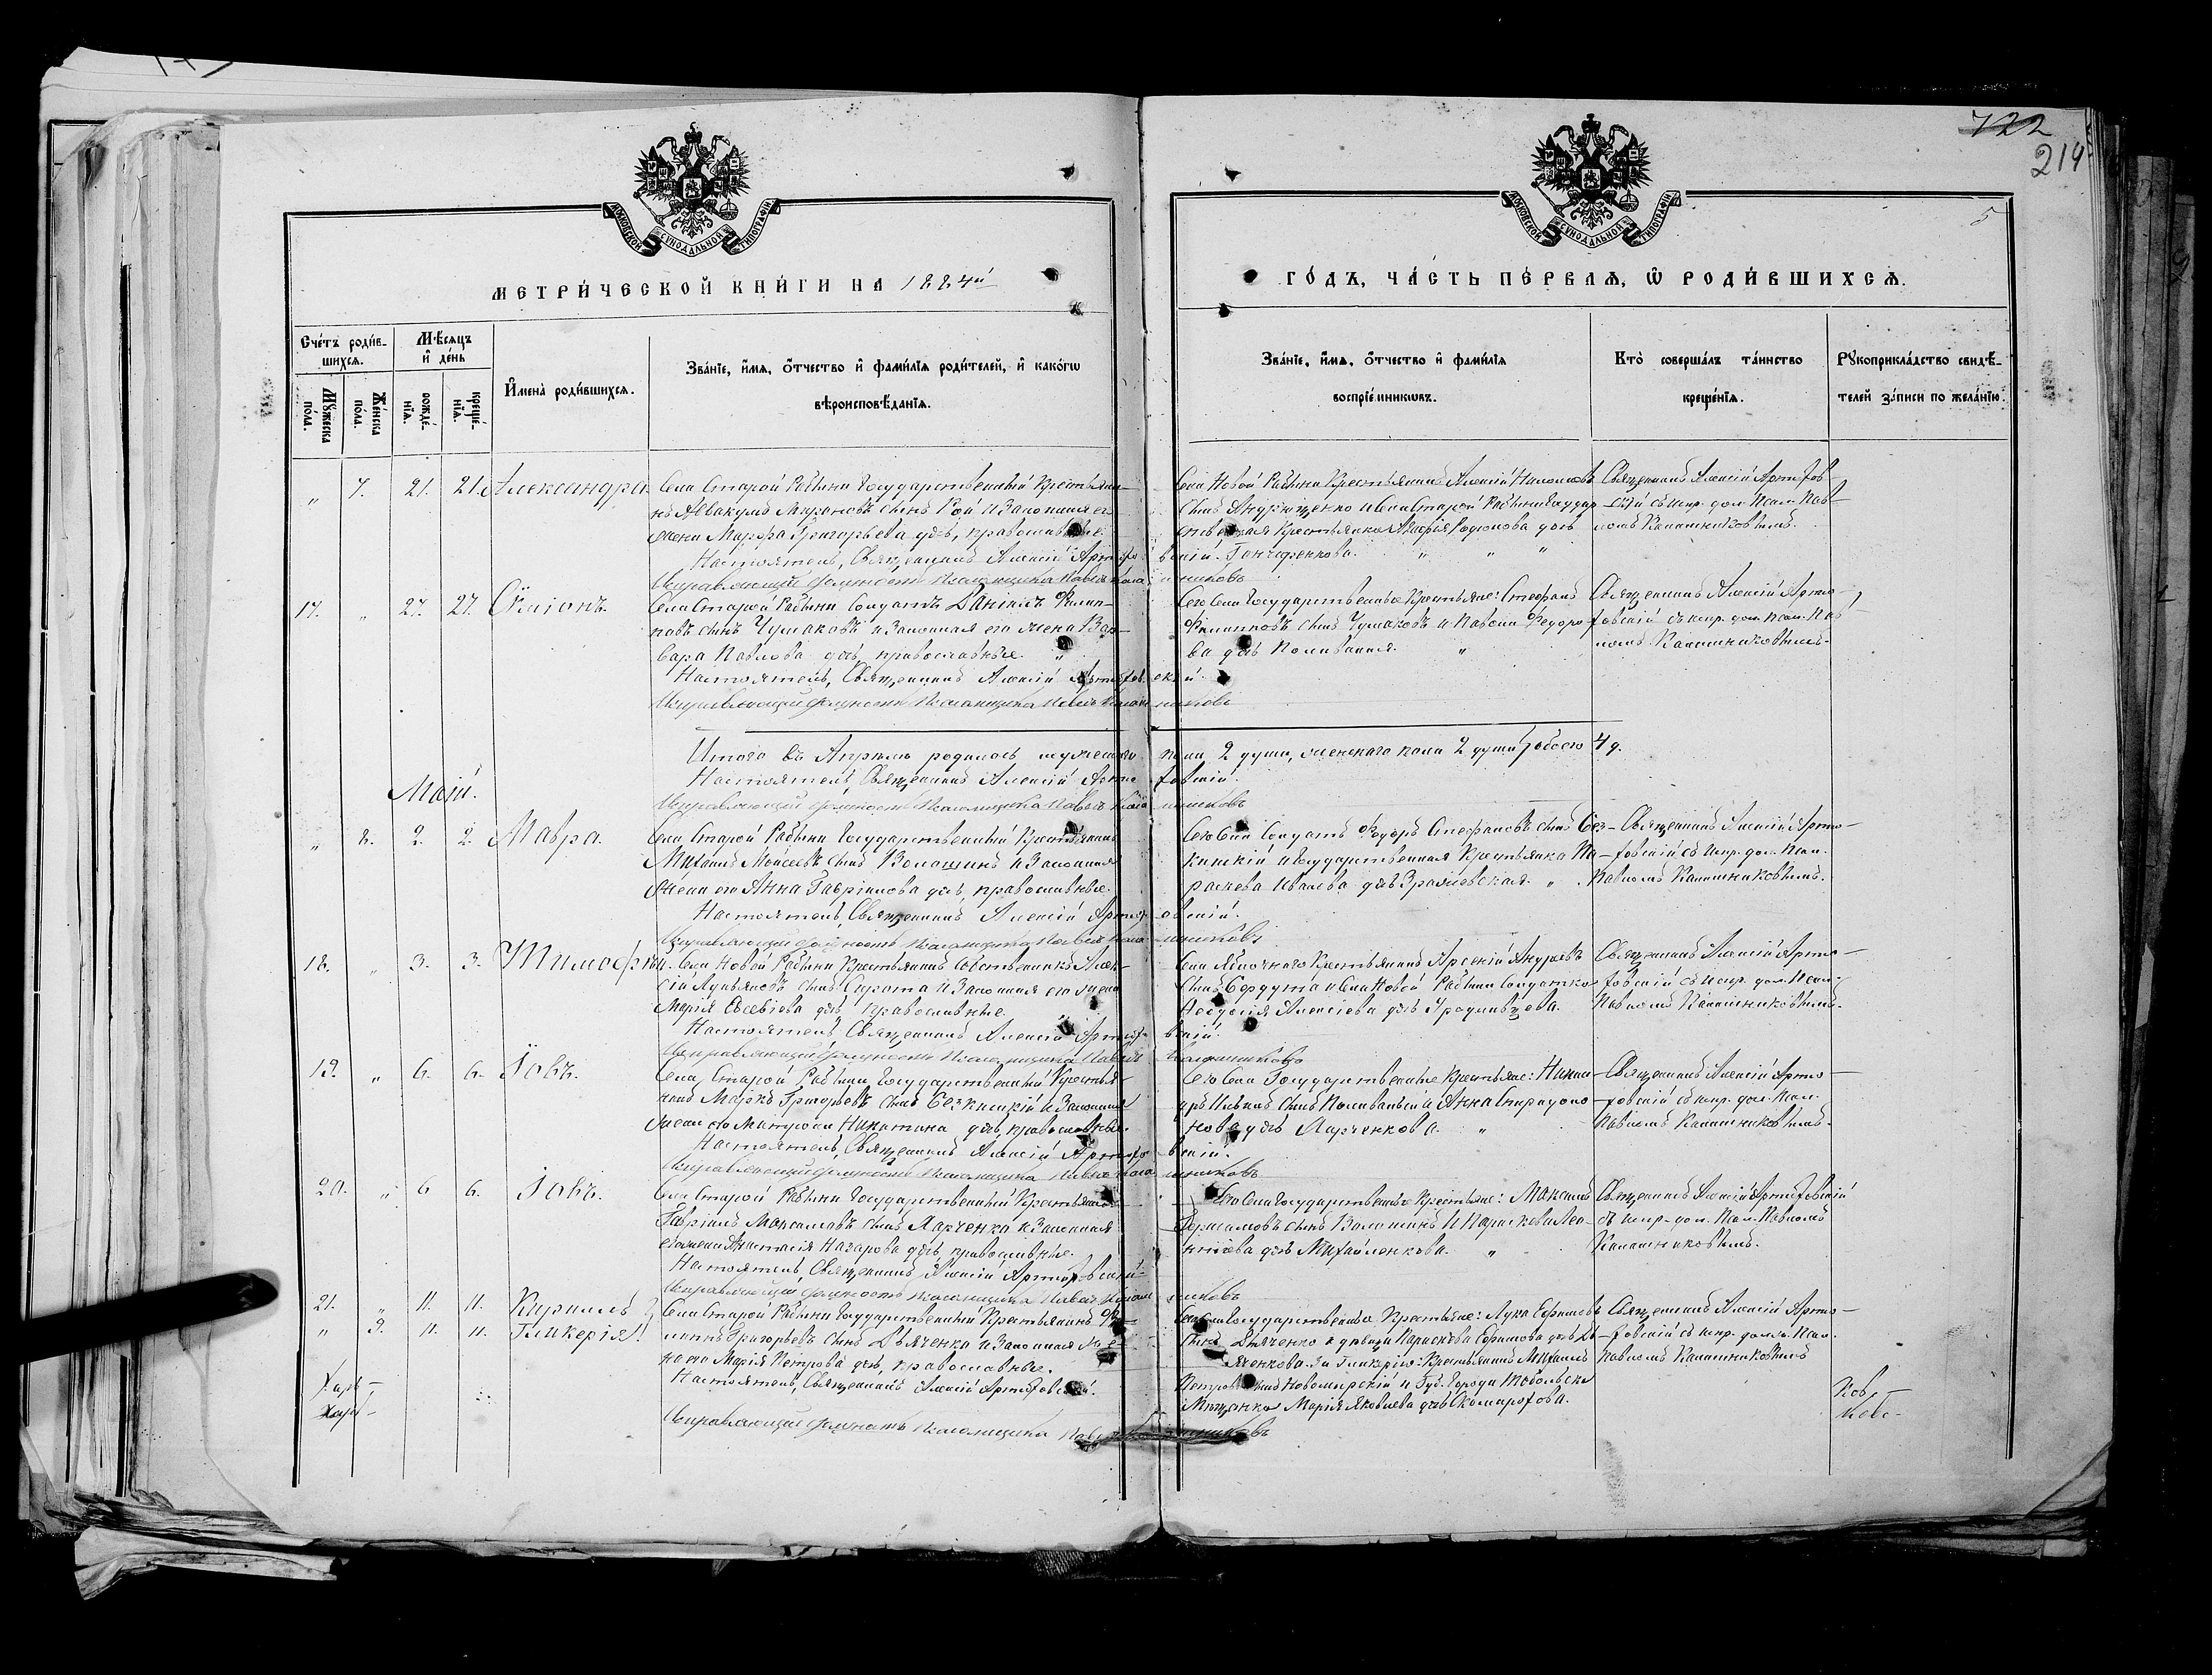 722
214
5
МОСКОВСКОЙ СѴНОДАЛЬНОЙ ТИПОГРАФІИ
МОСКОВСКОЙ СѴНОДАЛЬНОЙ ТИПОГРАФІИ
МЕТРИ́ЧЕСКОЙ КНИ́ГИ НА 1884й
ГО́ДЪ, ЧА́СТЬ ПЕ́РВАѦ, Ѿ РОДИ́ВШИХСѦ.
Сче́тъ роди́в-
шихсѧ.
Мꙋ́жеска по́ла.
Же́нска по́ла.
Мѣ́сѧцъ
и҆ де́нь
рожде́-
нїѧ.
креще́-
нїѧ.
И҆мена̀ роди́вшихсѧ.
Зва́нїе, и҆́мѧ, ѻ҆́тчество и҆ фами́лїѧ роди́телей, и҆ како́гѡ
вѣроисповѣ́данїѧ.
Зва́нїе, и҆́мѧ, ѻ҆́тчество и҆ фами́лїѧ
воспрїе́мникѡвъ.
Кто̀ соверша́лъ та́инство
креще́нїѧ.
Рꙋкоприкла́дство свидѣ́-
телей за́писи по жела́нїю.
„ 7. 21. 21. Александра.
Села Старой Рябины Государственный Крестьяни-
нъ Аввакумъ Мироновъ сынъ Кой и Законная его
жена Марфа Григорьева дчь, православные.
Настоятель, Священникъ Алексій Артюховскій.
Исправляющій должность Псаломщика Павелъ Калашниковъ
Села Новой Рябины Крестьянинъ Алексій
сынъ Андрющенко и Села Старой Рябины Государ-
ственная Крестьянка дчь
Гончаренкова. „ „ „
Священникъ Алексій Артюхов-
скій съ испр. дол. Псал. Пав-
ломъ Калашниковымъ.
17. „ 27. 27. Сѵмеонъ.
Села Старой Рябины Солдатъ Даніилъ Филип-
повъ сынъ Чумаковъ и Законная его жена Вар-
вара Павлова дчь, православные. „
Настоятель, Священникъ Алексій Артюховскій.
Исправляющій должность Псаломщика Павелъ Калашниковъ
Сего Села Государственные Крестьяне: Стефанъ
Филипповъ сынъ Чумаковъ и Федоро-
ва дчь Поливаная. „
Священникъ Алексій Артю-
ховскій съ испр. дол. Псал. Пав-
ломъ Калашниковымъ.
Итого въ Апрѣлѣ родилось мужескаго пола 2 души, женскаго пола 2 души, обоего 4 д.
Настоятель, Священникъ Алексій Артюховскій.
Исправляющій должность Псаломщика Павелъ Калашниковъ
Маій.
„ 8. 2. 2. Мавра.
Села Старой Рябины Государственный Крестьянинъ
Михаилъ Моисеевъ сынъ Волошинъ и Законная
жена его Анна Гавріилова дчь, православные.
Настоятель, Священникъ Алексій Артюховскій.
Исправляющій должность Псаломщика Павелъ Калашниковъ
Сего Села Солдатъ Федоръ Стефановъ сынъ Без-
кишкій и Государственная Крестьянка Па-
раскева Иванова дчь „
Священникъ Алексій Артю-
ховскій съ испр. дол. Псал.
Павломъ Калашниковымъ.
18. „ 3. 3. Тимофей.
Села Новой Рябины Крестьянинъ Собственникъ Алек-
сій Лукьяновъ сынъ Сирота и Законная его жена
Марія Евсевіева дчь православные.
Настоятель, Священникъ Алексій Артюховскій.
Исправляющій должность Псаломщика Павелъ Калашниковъ
Села Яблочнаго Крестьянинъ Арсеній Андреевъ
сынъ Сердута и Села Новой Рябины Солдатка
Феодосія Алексіева дчь
Священникъ Алексій Артю-
ховскій съ испр. дол. Псал.
Павломъ Калашниковымъ.
19. „ 6. 6. Іовъ.
Села Старой Рябины Государственный Крестья-
нинъ Марко Григорьевъ сынъ Безкишкій и Законная
жена его Матрона Никитина дчь, православные.
Настоятель, Священникъ Алексій Артюховскій.
Исправляющій должность Псаломщика Павелъ Калашниковъ
Сего Села Государственные Крестьяне: Никан-
дръ Ильинъ сынъ Поливаный и Анна Спиридоно-
нова дчь Харченкова. „
Священникъ Алексій Артю-
ховскій съ испр. дол. Псал.
Павломъ Калашниковымъ.
20. „ 6 6. Іовъ.
Села Старой Рябины Государственный Крестьянинъ
Гавріилъ Максимовъ сынъ Харченко и Законная
его жена Анастасія Назарова дчь, православные.
Настоятель, Священникъ Алексій Артюховскій
Исправляющій должность Псаломщика Павелъ Калашниковъ
Сего Села Государственные Крестьяне: Максимъ
сынъ Волошинъ и Параскева Лео-
нтіева дчь Михайленкова. „
Священникъ Алексій Артюховскій
съ испр. дол. Псал. Павломъ
Калашниковымъ.
21. „ 11. 11. Кириллъ
„ 9. 11. 11. Гликерія.
Села Старой Рябины Государственный Крестьянинъ Фи-
липпъ Григорьевъ сынъ Дьяченко и Законная же-
на его Марія Петрова дчь, православные.
Настоятель, Священникъ Алексій Артюховскій.
Исправляющій должность Псаломщика Павелъ Калашниковъ
Сего Села Государственные Крестьяне: Лука Ефимовъ
сынъ Дьяченко и дѣвица Параскева Ефимова дчь Дь-
яченкова. За Гликерію: Крестьянинъ Михаилъ
Петровъ сынъ Новомирскій и Губ. Города Тобольска
Мѣщанка Марія Яковлева дчь Скоморохова.
Священникъ Алексій Артю-
ховскій съ испр. долж. Псал.
Павломъ Калашниковымъ
Харь-
Харь-
Ков-